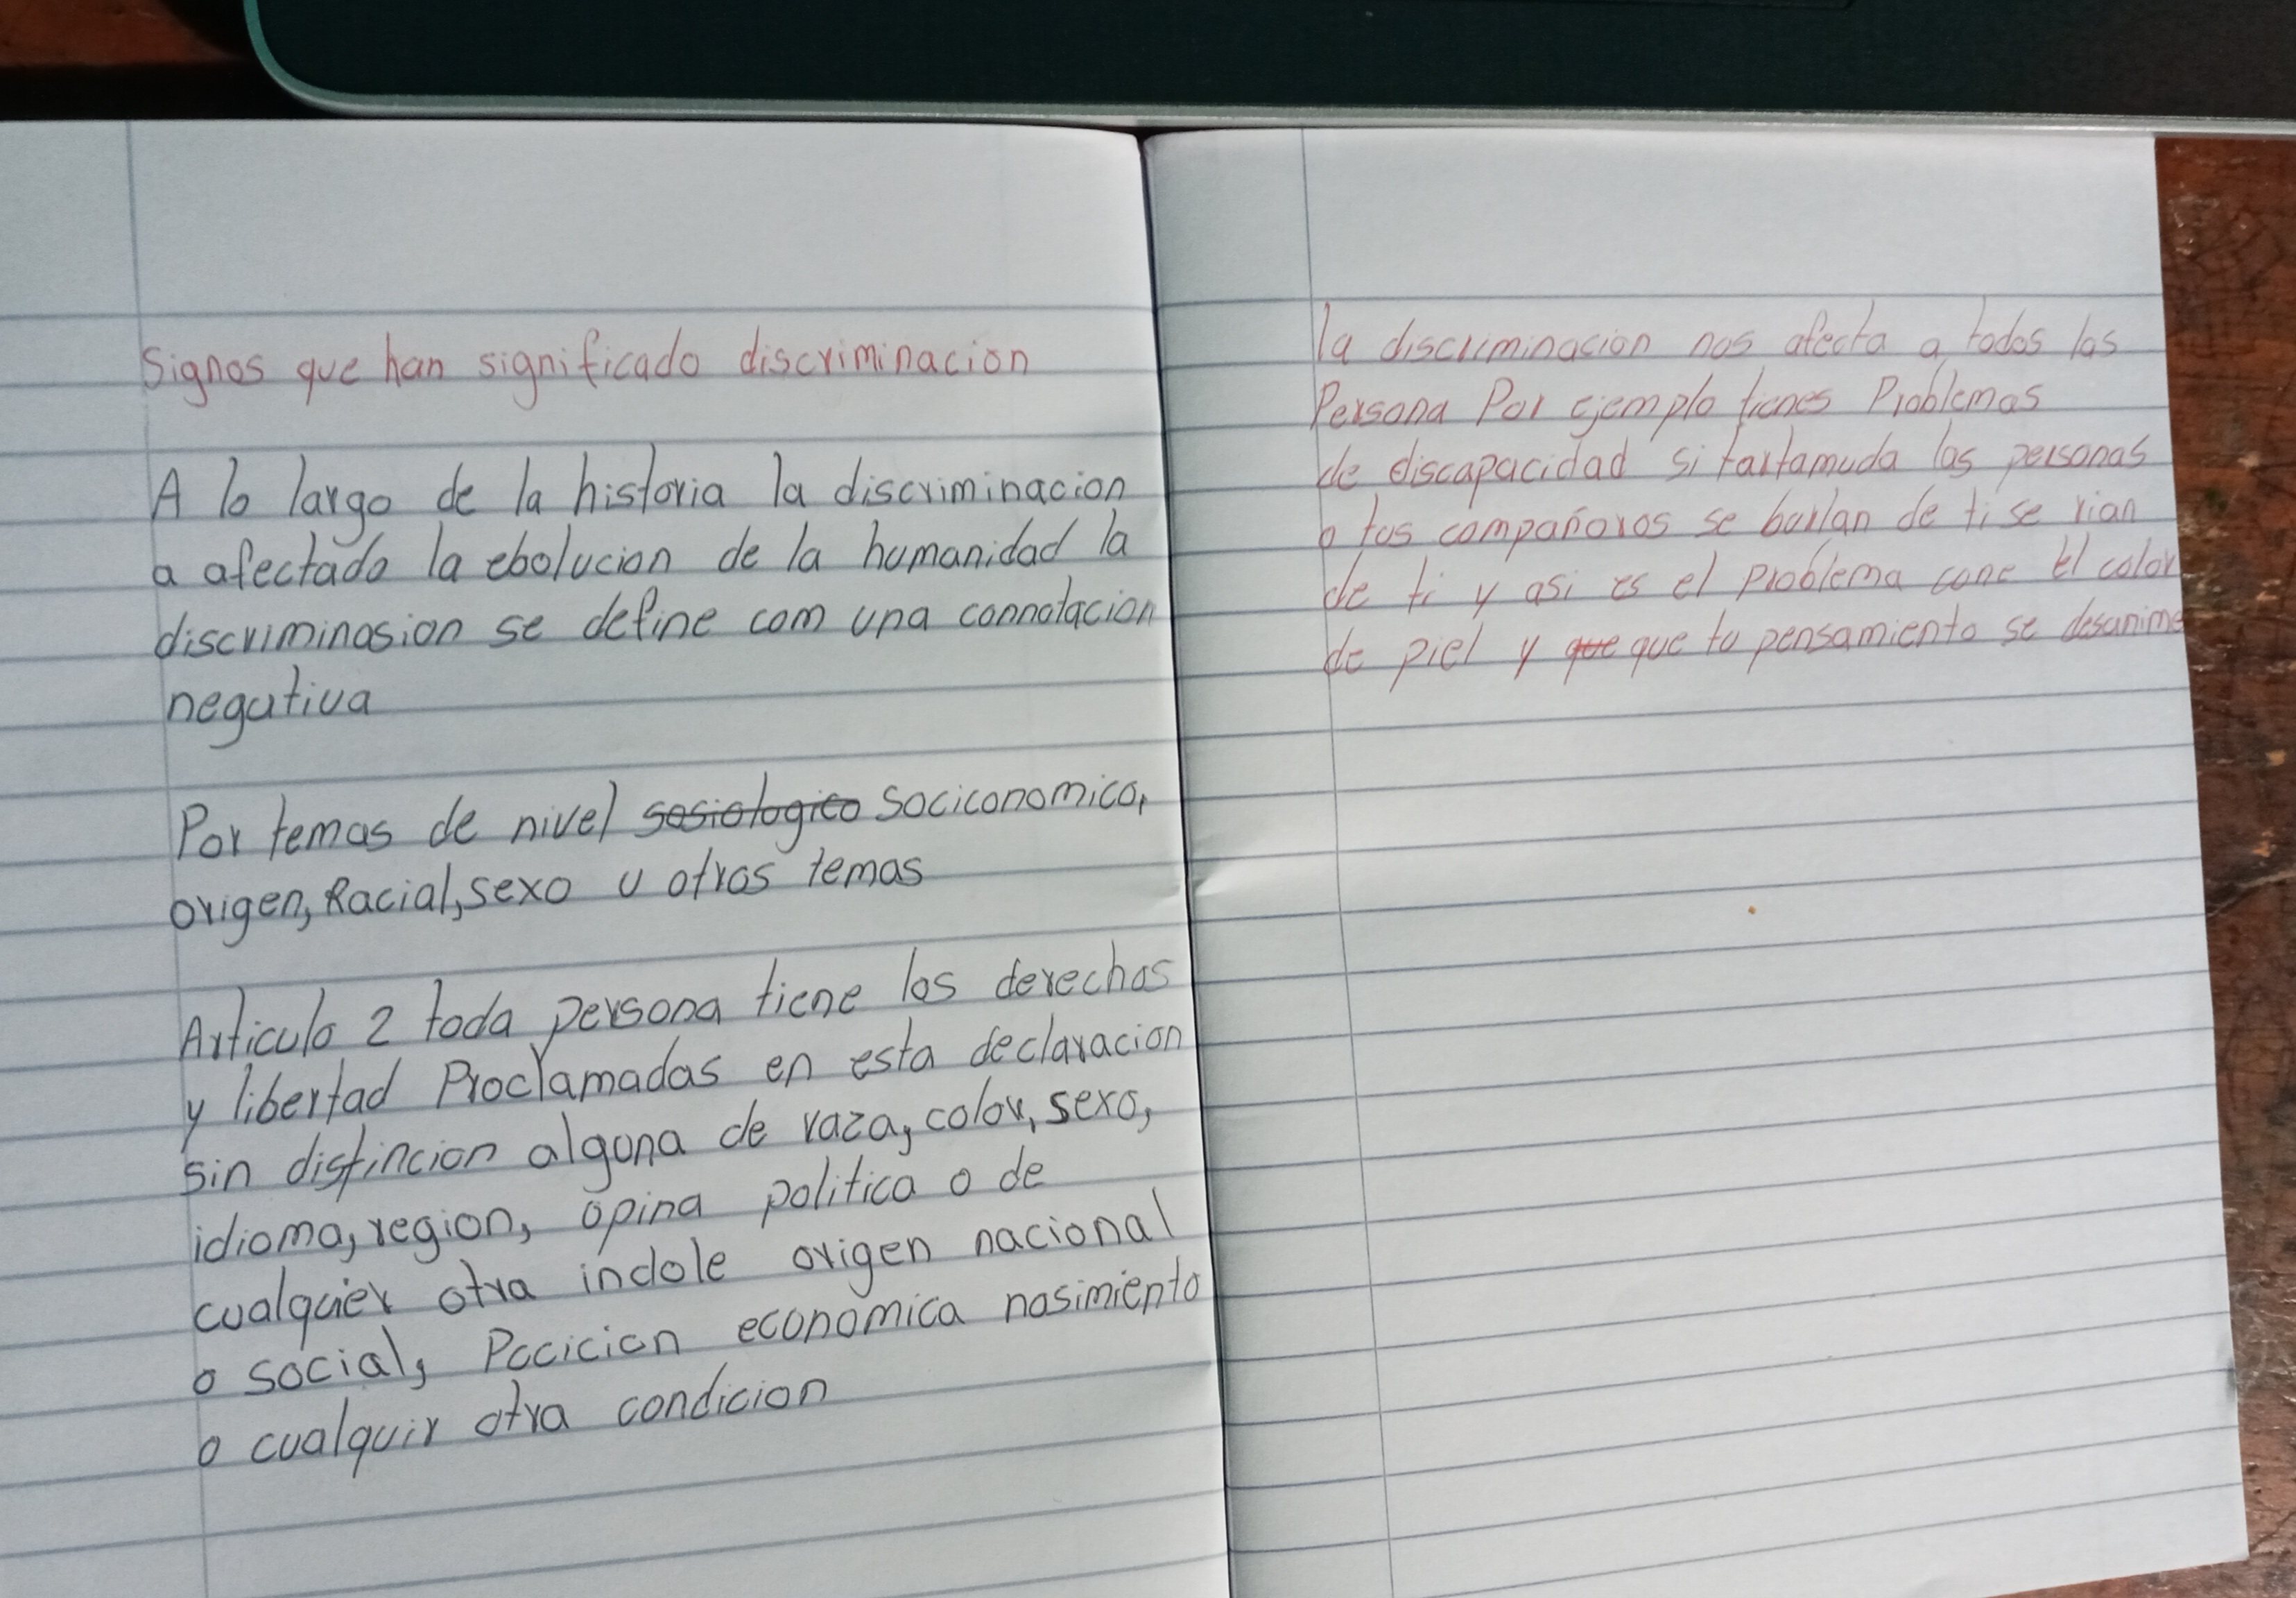 Signos que han significado discriminacion
A lo largo de la historia la discriminacion
a afectado la ebolucion de la humanidad la
discriminasion se define com una connotacion
negativa
Por temas de nivel sosiologico sociconomico,
origen, Racial, sexo u otros temas
Articulo 2 toda persona tiene los derechos
y libertad Proclamadas en esta declaracion
sin distincion alguna de raza, color, sexo,
idioma, region, opina politica o de
cualquier otra indole origen nacional
o social, Pocicion economica nasimiento
o cualquir otra condicion
la discriminacion nos afecta a todos las
Persona Por ejemplo tienes Problemas
de discapacidad si tartamuda las personas
o tus compañoros se burlan de ti se rian
de ti y asi es el problema cone el color
de piel y que que tu pensamiento se desanime